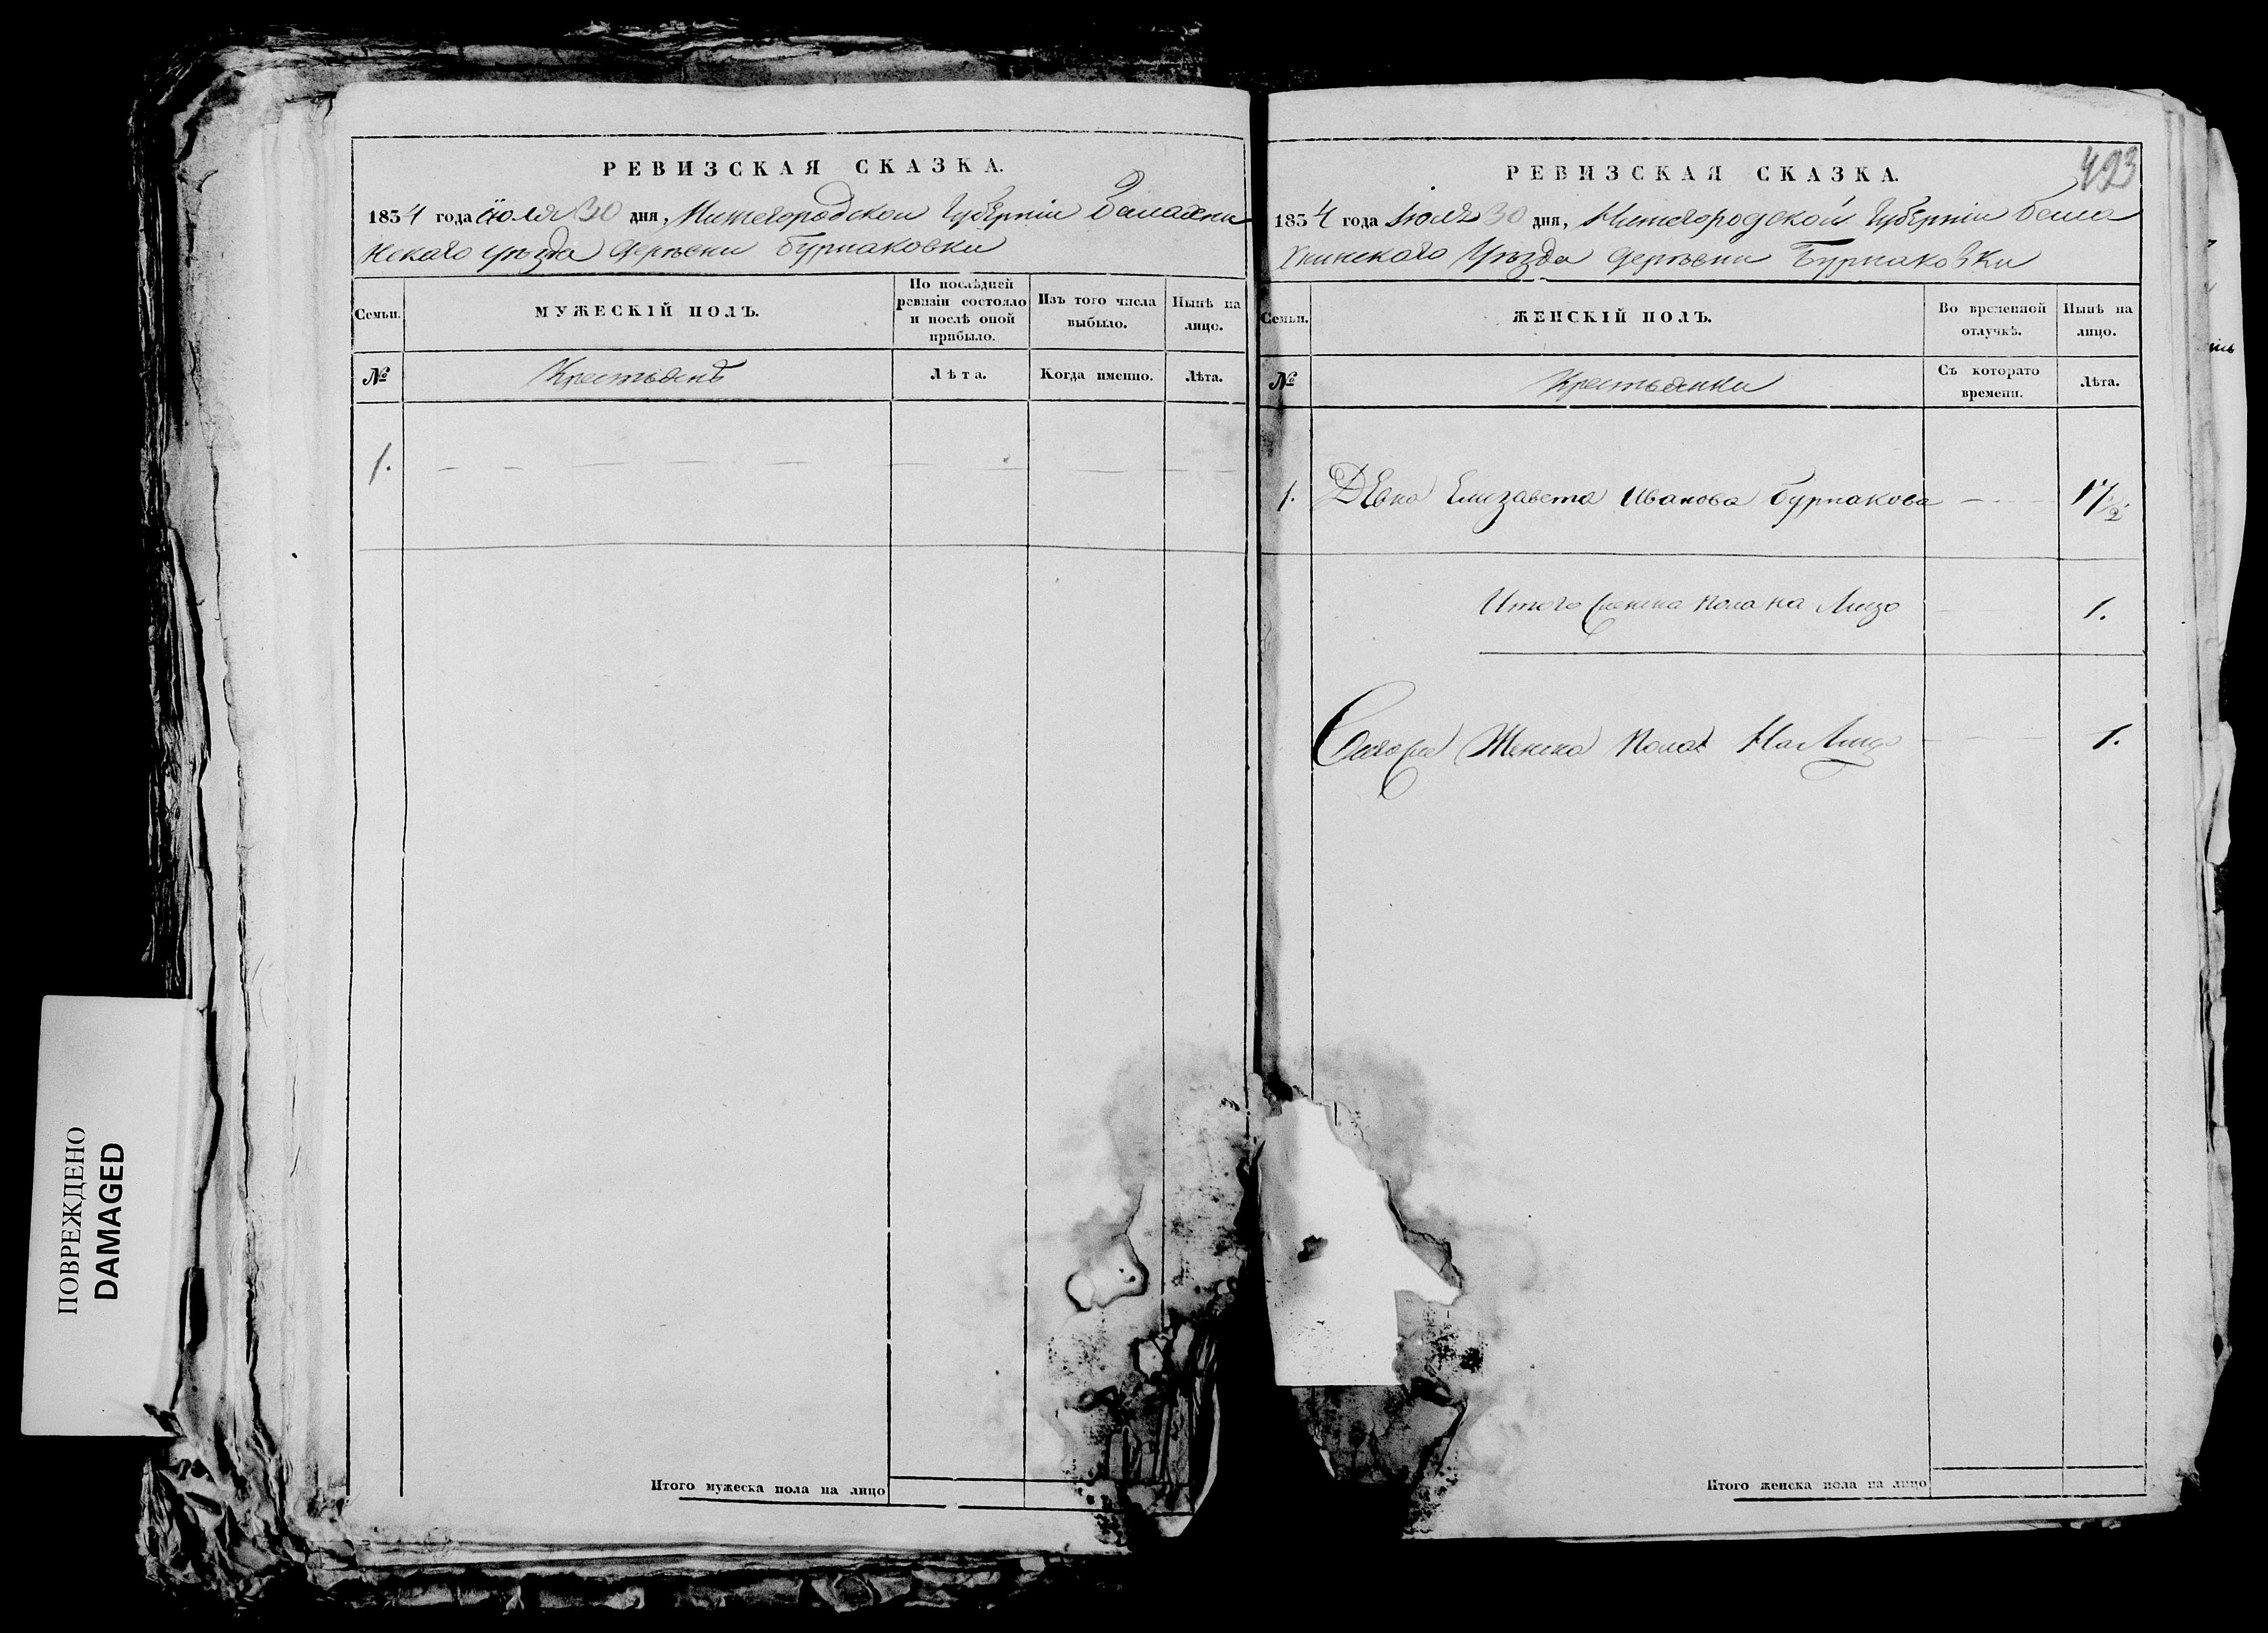 РЕВИЗСКАЯ СКАЗКА.
1854 года июля 30 дня, Нижегородской Губерніи Балахни
нскаго уѣзда деревни Бурнаковки
Семьи.
МУЖЕСКІЙ ПОЛЪ.
По послѣдней ревизіи состояло и послѣ оной прибыло.
Изъ того числа выбыло.
Нынѣ на лицо.
№
Крестьянъ
Лѣта.
Когда именно.
Лѣта.
1.
Итого мужеска пола на лицо
РЕВИЗСКАЯ СКАЗКА.
493
1854 года Июля 30 дня, Нижегородской Губерніи Бала
хнинского Уѣзда деревни Бурнаковки
Семьи.
ЖЕНСКІЙ ПОЛЪ.
Во временной отлучкѣ.
Нынѣ на лицо.
№
Крестьянки
Съ котораго времени.
Лѣта.
1. Девка Елизавета Иванова Бурнакова 17/2
Итого женска пола на Лицо 1.
Женска Пола На Лицо 1.
Итого женска пола на лицо
ПОВРЕЖДЕНО
DAMAGED